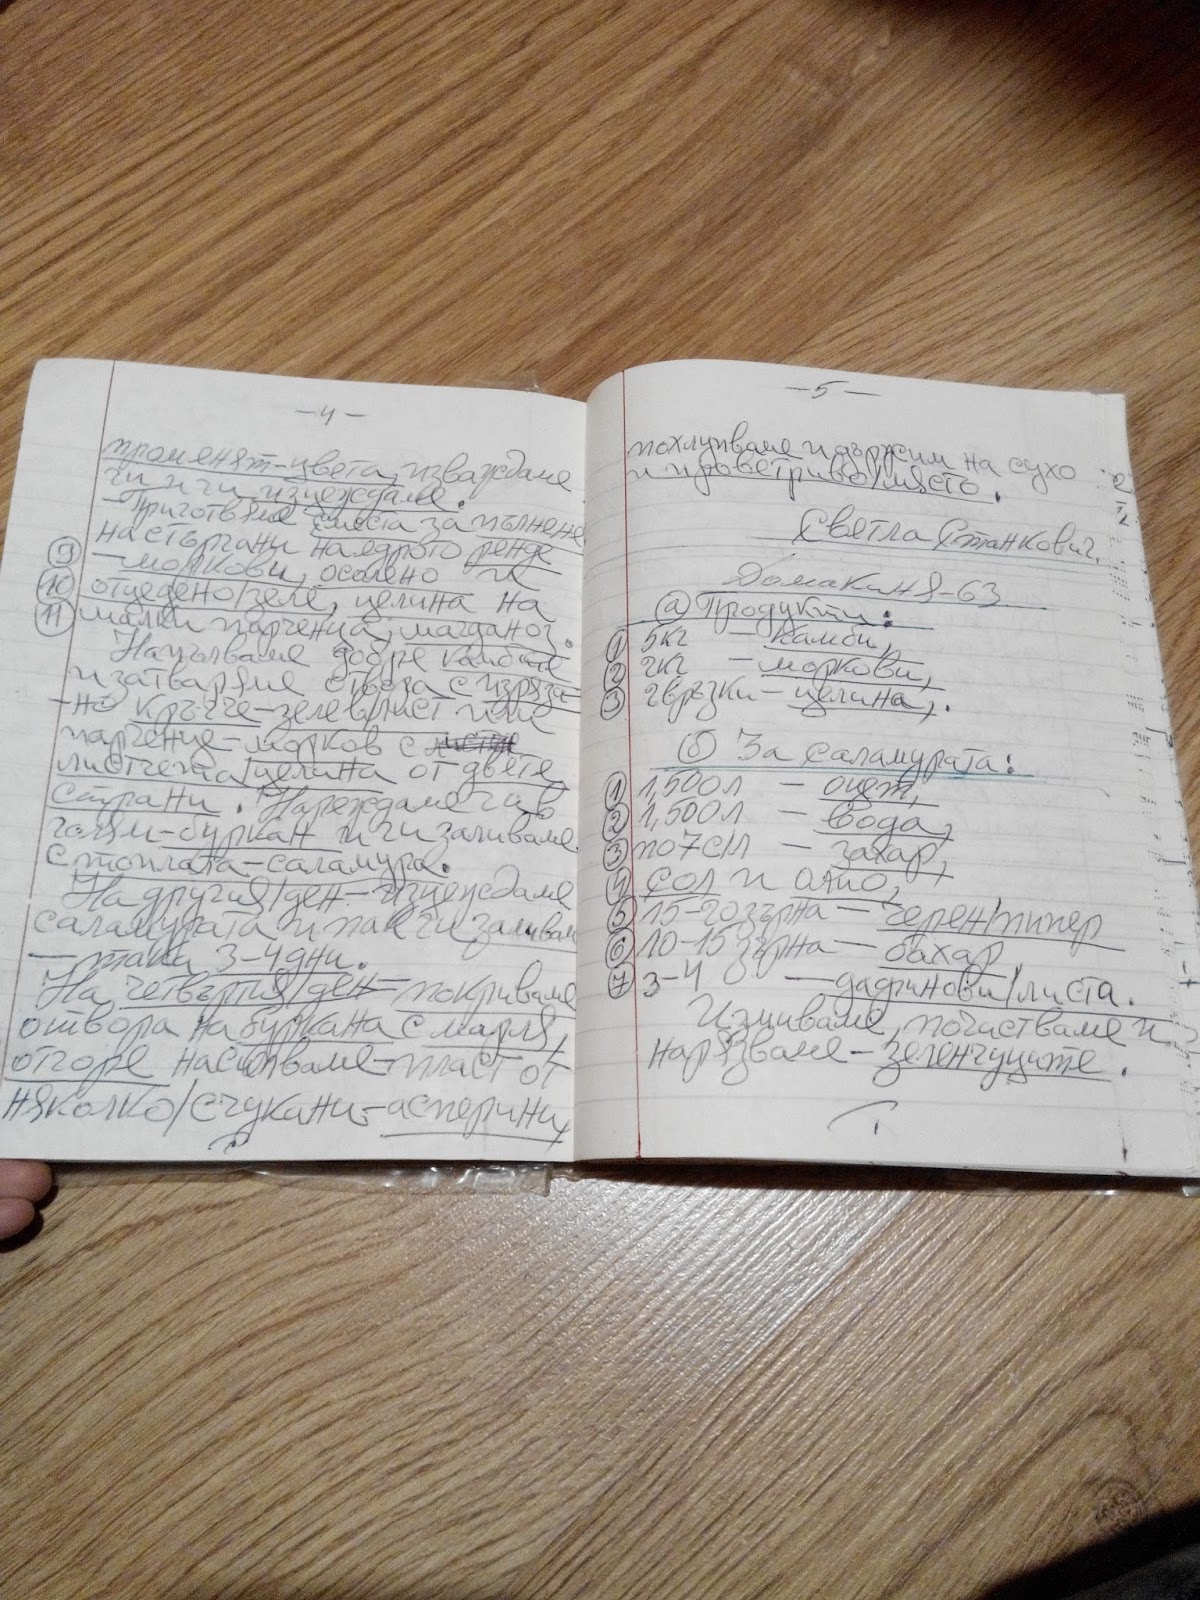 -4-
променят-цвета, изваждаме
ги и ги изцеждаме.
Приготвяме сместа за пълнене
настъргани на едрото ренде
⑨ -моркови, осолено и
⑩ отцедено/зеле, целина на
⑪ малки парченца, магданоз.
Напълваме добре камбите
и затваряме отвора с изряза-
но кръгче-зелев/лист или
парченце-морков с
листчета/целина от двете
страни. Нареждаме га в
голям-буркан и ги заливаме
с топлата-саламура.
На другия/ден-изцеждаме
саламурата и пак ги заливам
-така 3-4 дни.
На четвъртия/ден-покриваме
отвора на буркана с марля,
отгоре насипваме-пласт от
няколко/счукани-асперини,
-5-
похлупваме и държим на сухо
и проветриво/място.
Светла Станкович.
Домакиня-63
ⓐ Продукти:
① 5кг - камби,
② 2кг - моркови,
③ 2връзки-целина,.
ⓑ За саламурата:
① 1,500л - оцет,
② 1,500л - вода,
③ по 7с/л - захар,
④ сол и олио,
⑤ 15-20зърна - черен/пипер
⑥ 10-15зърна - бахар,
⑦ 3-4 - дафинови/листа.
Измиваме, почистваме и
нарязваме-зеленчуците.